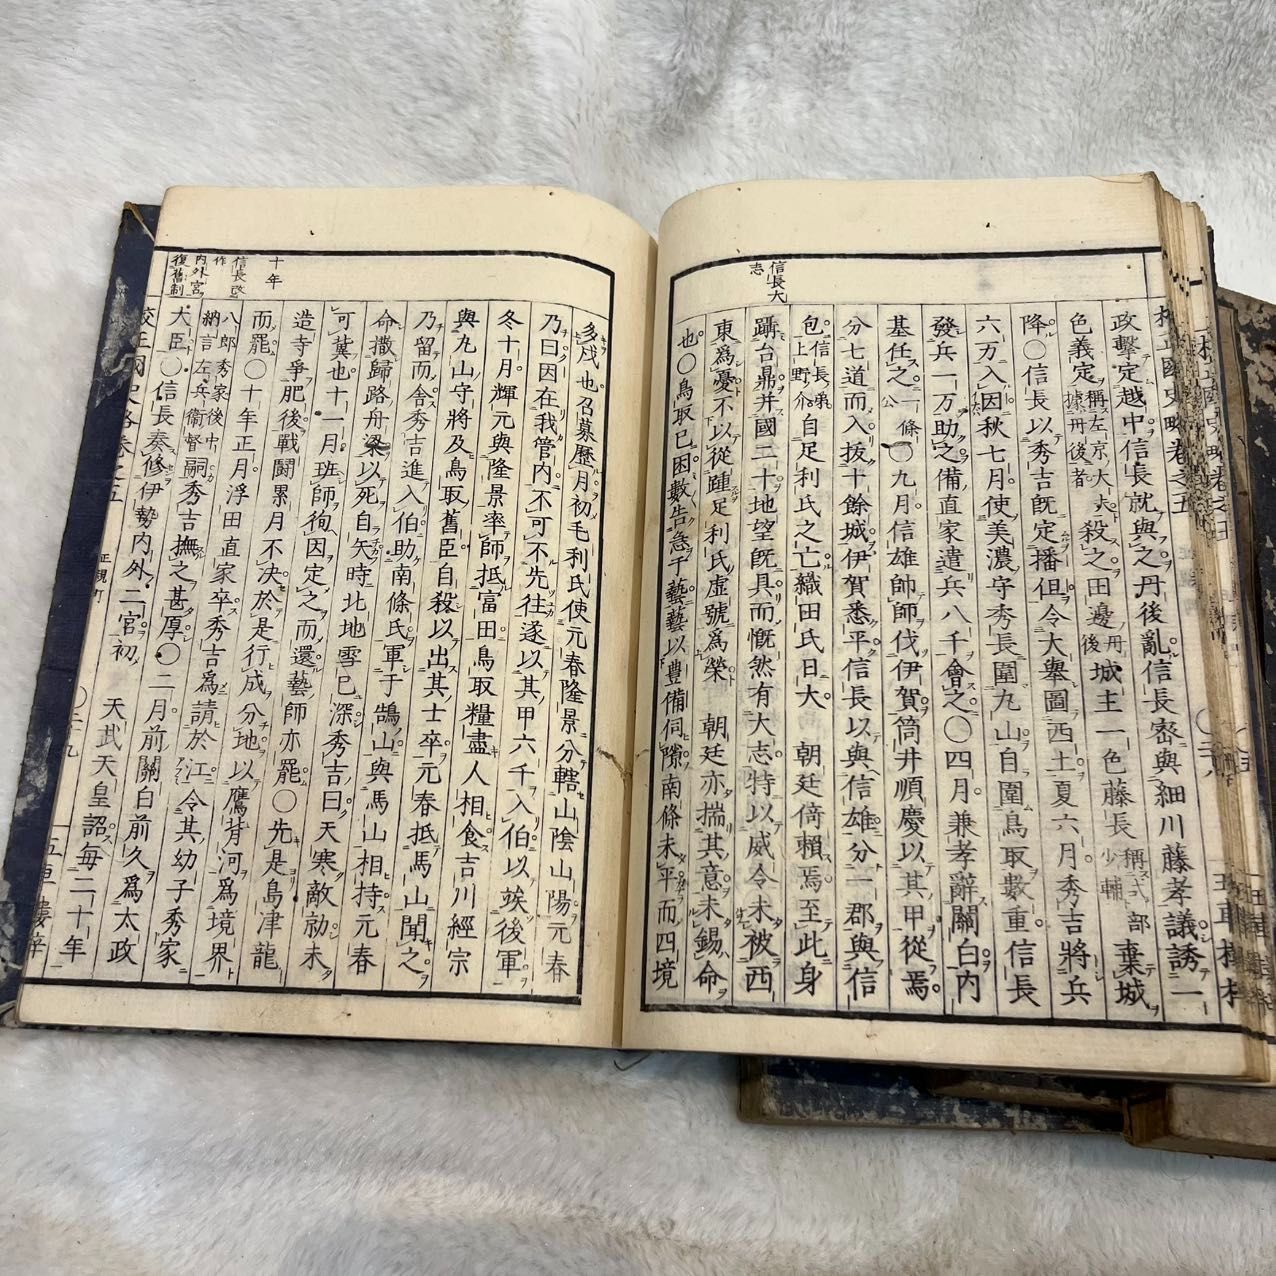 信長大
志
政擊定越中信長就與之丹後亂信長密與細川藤孝議誘一
色義定稱左京大夫據丹後者殺之田邊丹後城主一色藤長稱式部少輔棄城
降〇信長以秀吉既定播但令大舉圖西土夏六月秀吉將兵
六万入因秋七月使美濃守秀長圍九山自圍鳥取數重信長
發兵一万助之備直家遣兵八千會之〇四月兼孝辭關白內
基任之一條公〇九月信雄帥師伐伊賀筒井順慶以其甲從焉
分七道而入拔十餘城伊賀悉平信長以與信雄分一郡與信
包信長弟上野介自足利氏之亡織田氏日大 朝廷倚賴焉至此身
躡台鼎并國二十地望既具而慨然有大志特以威令未被西
東爲憂不以從踵足利氏虛號爲榮 朝廷亦揣其意未錫命
也〇鳥取已困數告急于藝藝以豊備伺隙南條未平而四境
多戍也召募歷月初毛利氏使元春隆景分轄山陰山陽元春
乃曰因在我管內不可不先往遂以其甲六千入伯以竢後軍
冬十月輝元與隆景率師抵富田鳥取糧盡人相食吉川經宗
與九山守將及鳥取舊臣自殺以出其士卒元春抵馬山聞之
乃留而舍秀吉進入伯助南條氏軍于鵠山與馬山相持元春
命撤歸路舟梁以死自矢時北地雪已深秀吉曰天寒敵勍未
可冀也十一月班師徇因定之而還藝師亦罷〇先是島津龍
造寺爭肥後戰鬭累月不決於是行成分地以鷹背河爲境界
十年
而罷〇十年正月浮田直家卒秀吉爲請於江令其幼子秀家
信長改
作
八郎秀家後中納言左兵衞督嗣秀吉撫之甚厚〇二月前關白前久爲太政
內外宮
復舊制
大臣〇信長奏修伊勢內外二宮初 天武天皇詔每二十年
校正國史略卷之五 正親町 〇三九 五車樓梓